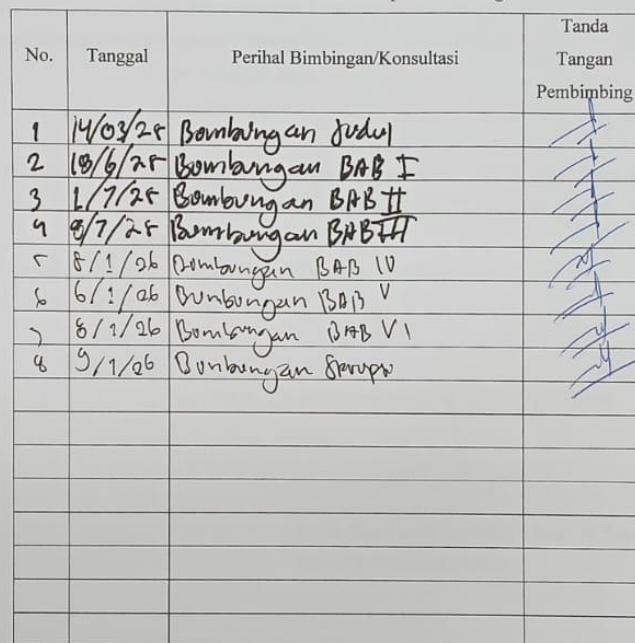 No. Tanggal Perihal Bimbingan/Konsultasi Tanda Tangan Pembimbing
1 14/03/25 Bimbingan Judul
2 18/6/25 Bimbingan BAB I
3 1/7/25 Bimbingan BAB II
4 8/7/25 Bimbingan BAB III
5 8/1/26 Bimbingan BAB IV
6 6/1/26 Bimbingan BAB V
7 8/1/26 Bimbingan BAB VI
8 9/1/26 Bimbingan Skripsi